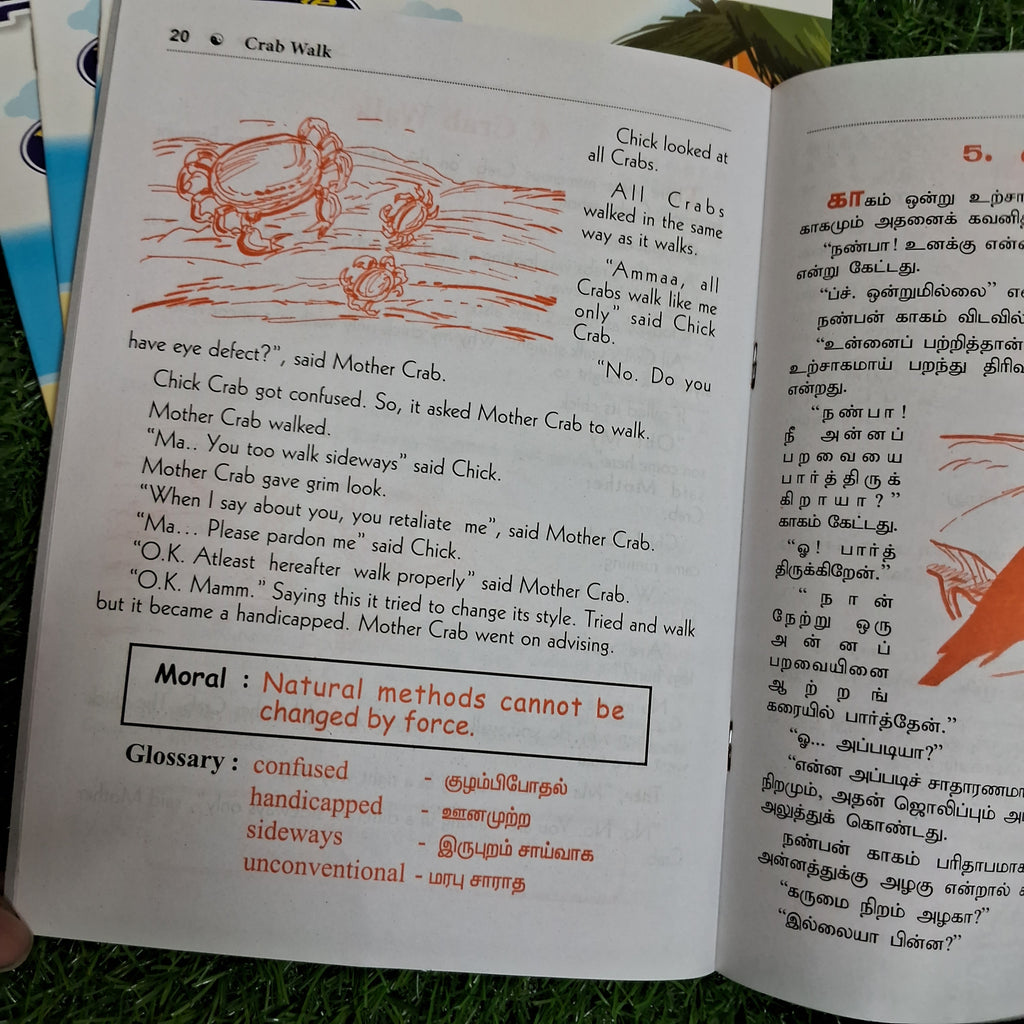 20 ☯ Crab Walk
Chick looked at
all Crabs.
All Crabs
walked in the same
way as it walks.
“Ammaa, all
Crabs walk like me
only” said Chick
Crab.
“No. Do you
have eye defect?”, said Mother Crab.
Chick Crab got confused. So, it asked Mother Crab to walk.
Mother Crab walked.
“Ma.. You too walk sideways” said Chick.
Mother Crab gave grim look.
“When I say about you, you retaliate me”, said Mother Crab.
“Ma... Please pardon me” said Chick.
“O.K. Atleast hereafter walk properly” said Mother Crab.
“O.K. Mamm.” Saying this it tried to change its style. Tried and walk
but it became a handicapped. Mother Crab went on advising.
Moral : Natural methods cannot be
changed by force.
Glossary : confused - குழம்பிபோதல்
handicapped - ஊனமுற்ற
sideways - இருபுறம் சாய்வாக
unconventional - மரபு சாராத
5.
காகம் ஒன்று
காகமும் அதனைக்
“நண்பா! உனக்கு
என்று கேட்டது.
“ப்ச். ஒன்றுமில்லை”
நண்பன் காகம்
“உன்னைப் பற்றித்தான்
உற்சாகமாய் பறந்து
என்றது.
“நண்பா!
நீ அன்னப்
பறவையை
பார்த்திருக்
கிறாயா?”
காகம் கேட்டது.
“ஓ! பார்த்
திருக்கிறேன்.”
“நான்
நேற்று ஒரு
அன்னப்
பறவையினை
ஆற்றங்
கரையில் பார்த்தேன்.”
“ஓ... அப்படியா?”
“என்ன அப்படிச்
நிறமும், அதன் ஜொலிப்பும்
அலுத்துக் கொண்டது.
நண்பன் காகம்
அன்னத்துக்கு அழகு என்றால்
“கருமை நிறம் அழகா?”
“இல்லையா பின்ன?”